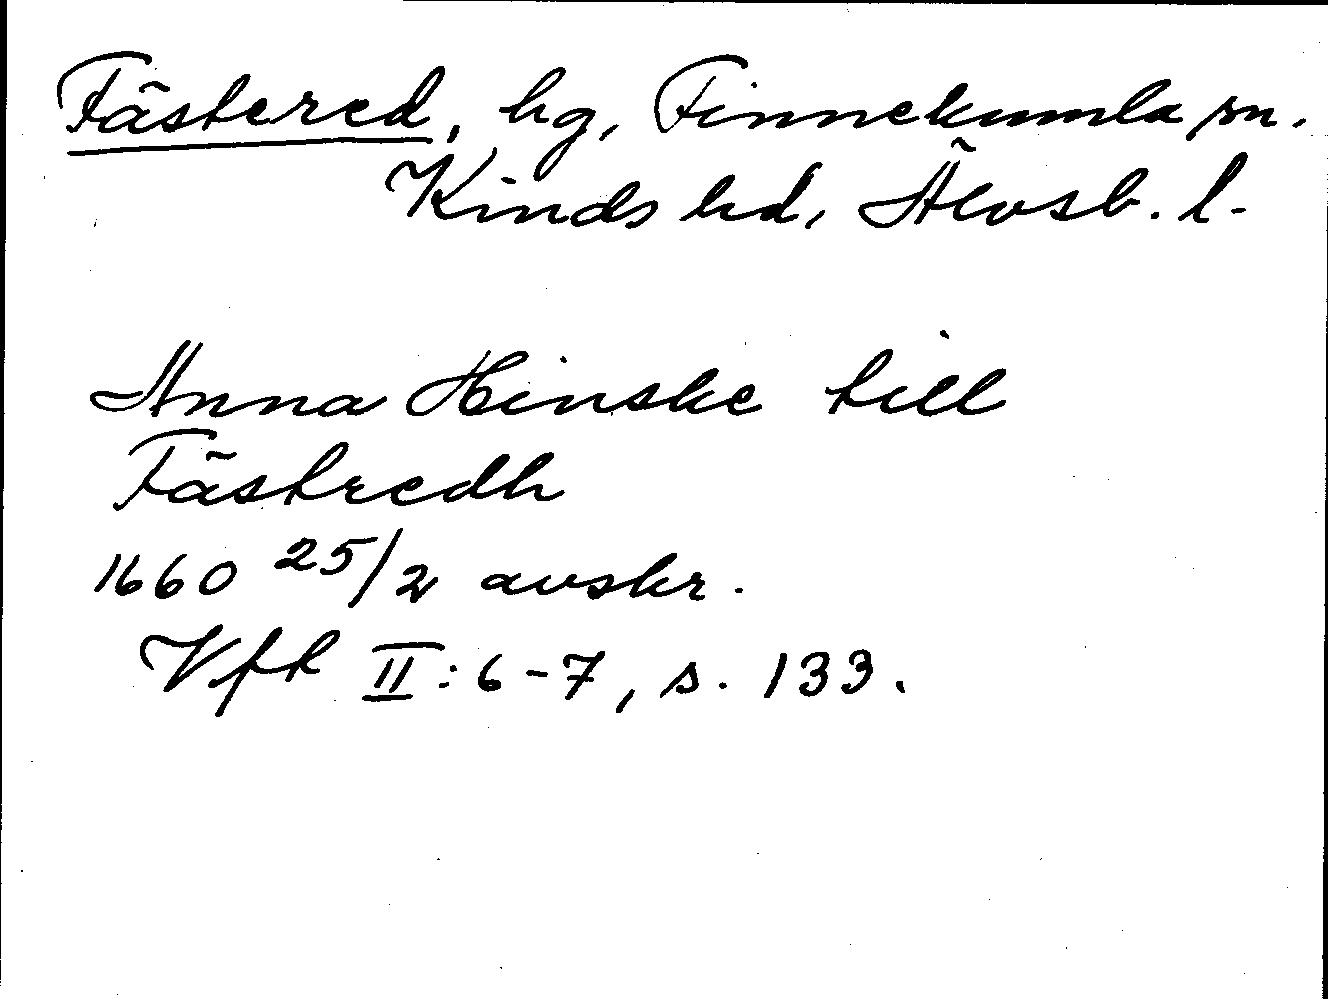 Fästered, hg, Finnekumla sn.
Kinds hd, Älvsb. l.
Anna Hinske till
Fästredh
1660 25/2 avskr.
Vfk II: 6-7, s. 133.